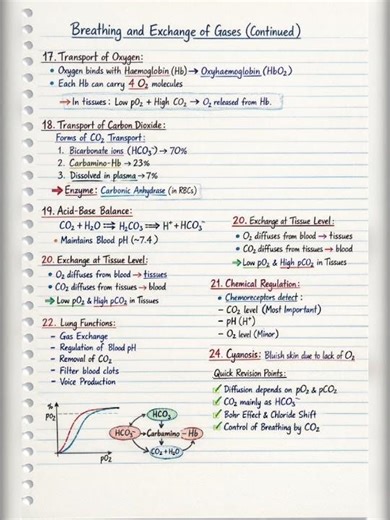 Breathing and Exchange of Gases (Continued)
17. Transport of Oxygen:
• Oxygen binds with Haemoglobin (Hb) → Oxyhaemoglobin (HbO2)
• Each Hb can carry 4 O2 molecules
→ In tissues : Low pO2 + High CO2 → O2 released from Hb.
18. Transport of Carbon Dioxide:
Forms of CO2 Transport:
1. Bicarbonate ions (HCO3⁻) → 70%
2. Carbamino-Hb → 23%
3. Dissolved in plasma → 7%
→ Enzyme: Carbonic Anhydrase (in RBCs)
19. Acid-Base Balance:
CO2 + H2O ⇌ H2CO3 ⇌ H⁺ + HCO3⁻
• Maintains Blood pH (~7.4)
20. Exchange at Tissue Level:
• O2 diffuses from blood → tissues
• CO2 diffuses from tissues → blood
→ Low pO2 & High pCO2 in Tissues
22. Lung Functions:
– Gas Exchange
– Regulation of Blood pH
– Removal of CO2
– Filter blood clots
– Voice Production
20. Exchange at Tissue Level:
• O2 diffuses from blood → tissues
• CO2 diffuses from tissues → blood
→ Low pO2 & High pCO2 in Tissues
21. Chemical Regulation:
• Chemoreceptors detect :
– CO2 level (Most Important)
– pH (H⁺)
– O2 level (Minor)
24. Cyanosis: Bluish skin due to lack of O2
Quick Revision Points:
✓ Diffusion depends on pO2 & pCO2
✓ CO2 mainly as HCO3⁻
✓ Bohr Effect & Chloride Shift
✓ Control of Breathing by CO2
%
pO2
pO2
HCO3
HCO3⁻ → Carbamino – Hb
CO2 + H2O